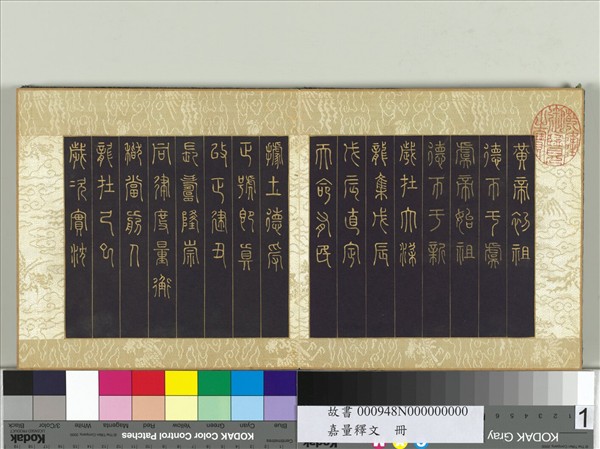 黃帝初祖
德帀于虞
虞帝始祖
德帀于新
歲在大梁
龍集戊辰
戊辰直定
天命有民
據土德受
正號即真
改正建丑
長壽隆崇
同律度量衡
稽當前人
龍在己巳
歲次實沈
Blue Cyan Green Yellow Red Magenta White 3/Color Black
Kodak
KODAK Color Control Patches
KODAK Gray
故書 000948N000000000
嘉量釋文 冊
1